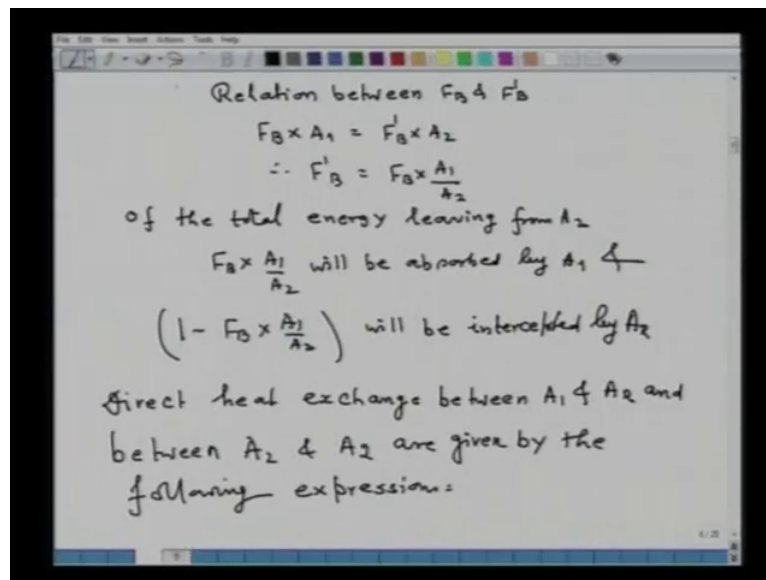 File Edit View Insert Actions Tools Help
Relation between FB & F'B
FB × A1 = F'B × A2
∴ F'B = FB × A1/A2
Of the total energy leaving from A2
FB × A1/A2 will be absorbed by A1 &
(1 - FB × A1/A2) will be intercepted by AR
Direct heat exchange between A1 & AR and
between A2 & AR are given by the
following expression: